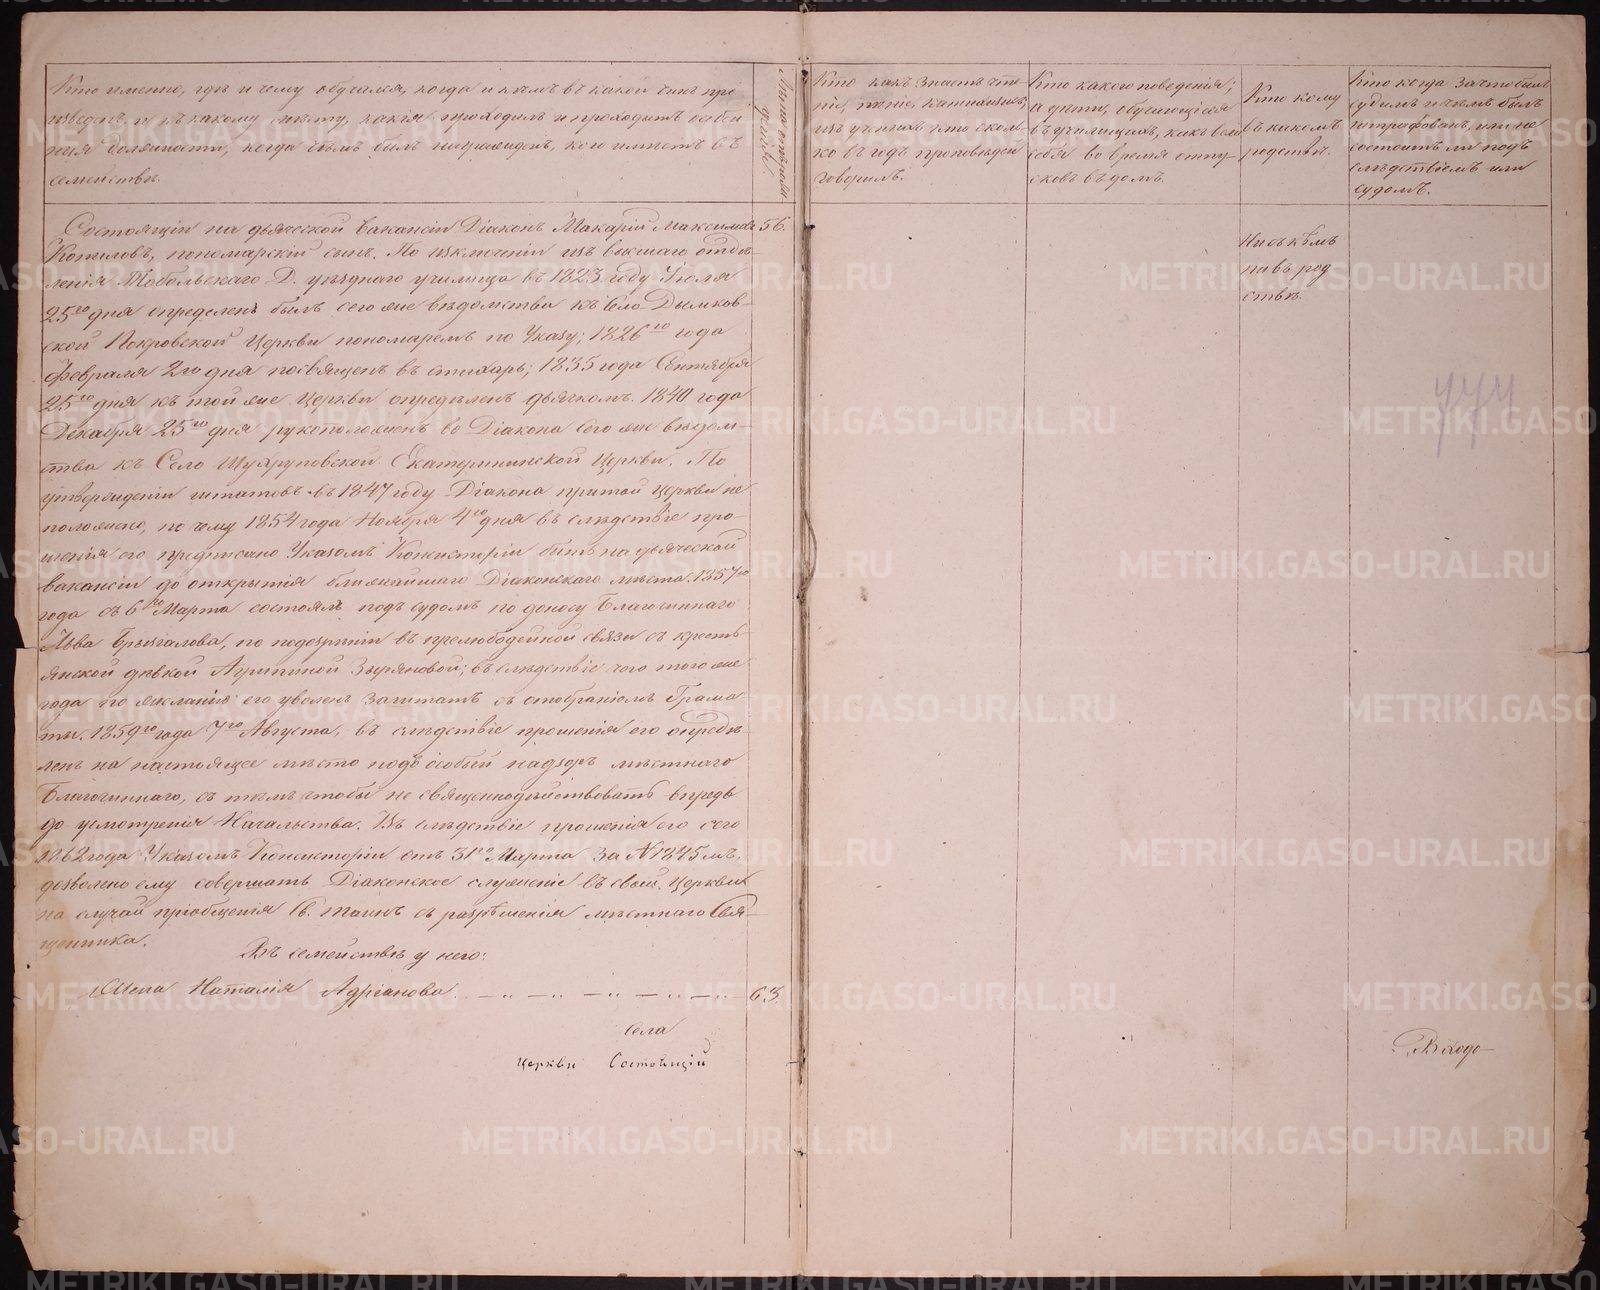 Кто именно, гдѣ и чему обучался, когда и кѣмъ въ какой чинъ про
изведенъ и къ какому мѣсту, какія проходилъ и проходитъ особен
ныя должности, когда чѣмъ былъ награжденъ, кого имѣетъ въ
семействѣ.
Кто какъ знаетъ чте
ніе, пѣніе, катихизисъ,
изъ ученыхъ кто сколь
ко въ годъ проповѣдей
говорилъ.
Кто какого поведенія;
а дѣти, обучающіеся
въ училищахъ, какъ вели
себя во время отпу
сковъ въ домъ.
Кто кому
въ какомъ
родствѣ.
Кто когда за что былъ
судимъ и чѣмъ былъ
штрафованъ, или не
состоитъ ли подъ
слѣдствіемъ или
судомъ.
Состоящій на дьяческой вакансіи Діаконъ Макарій Максимовъ 56.
Копыловъ, пономарскій сынъ. По изключеніи изъ высшаго отдѣ-
ленія Тобольскаго Д. уѣзднаго училища въ 1823 году Іюля
25го дня опредѣленъ былъ сего же вѣдомства къ Село Дымков-
ской Покровской Церкви пономаремъ по Указу; 1826го года
Февраля 2го дня посвященъ въ стихарь; 1835 года Сентября
25го дня къ той же Церкви опредѣленъ дьячкомъ. 1840 года
Декабря 25го дня рукоположенъ во Діакона сего же вѣдом-
ства къ Село Шухруповской Екатерининской Церкви. По
утвержденіи штатовъ въ 1847 году Діакона при той Церкви не
положено, по чему 1854 года Ноября 4го дня въ слѣдствіе про-
шенія его предписано Указомъ Консисторіи быть на дьяческой
вакансіи до открытія ближайшаго Діаконскаго мѣста. 1857го
года съ 6го Марта состоялъ подъ судомъ по доносу Благочиннаго
Льва Брызгалова, по подозрѣнію въ прелюбодейной связи съ кресть-
янской дѣвкой Агрипиной Зыряновой; въ слѣдствіе чего того же
года по желанію его уволенъ заштатъ съ отобраніемъ Грамо-
ты. 1859го года 7го Августа, въ слѣдствіе прошенія его опредѣ-
ленъ на настоящее мѣсто подъ особый надзоръ мѣстнаго
Благочиннаго, съ тѣмъ чтобы не священнодѣйствовать впредь
до усмотренія Начальства. Въ слѣдствіе прошенія его сего
1862 года Указомъ Консисторіи отъ 31го Марта за № 1845мъ,
дозволено ему совершать Діаконское служеніе въ своей Церкви
на случай пріобщенія Св. таинъ съ разрѣшенія мѣстнаго Свя-
щенника.
Ни съ кѣмъ
не въ род
ствѣ.
Въ семействѣ у него:
Жена Наталія Адріанова. 63.
села
Церкви Состоящій